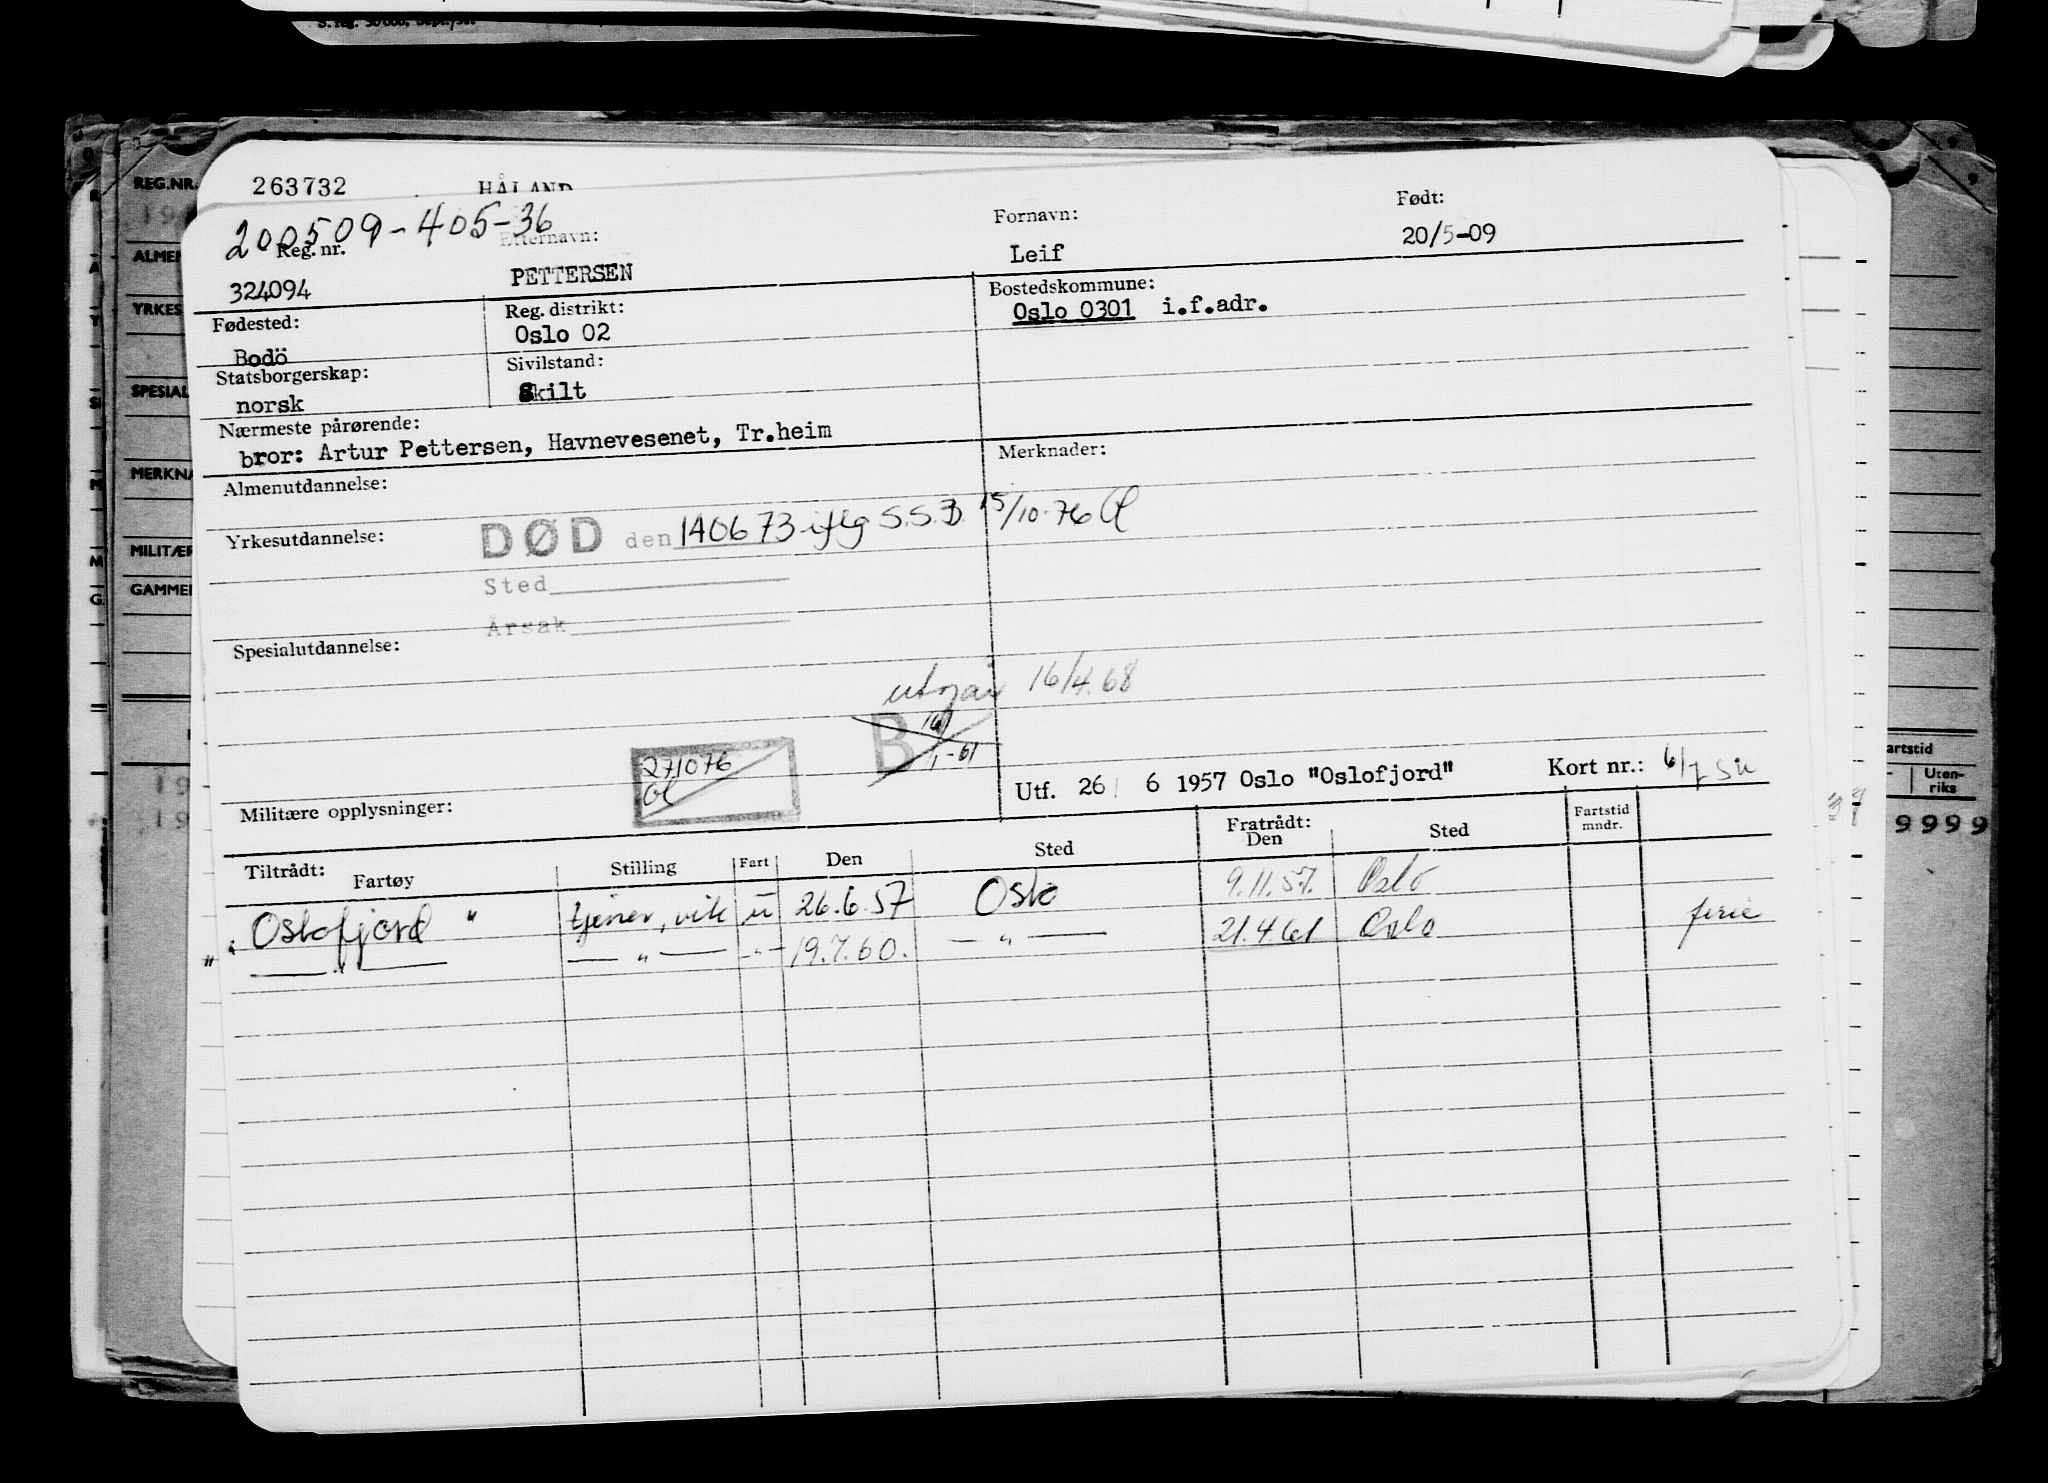 263732 HÅLAND
200509-405-36
Reg. nr. Etternavn: Fornavn: Født:
324094 PETTERSEN Leif 20/5-09
Fødested: Reg. distrikt: Bostedskommune:
Bodö Oslo 02 Oslo 0301 i.f.adr.
Statsborgerskap: Sivilstand:
norsk Skilt
Nærmeste pårørende:
bror: Artur Pettersen, Havnevesenet, Tr.heim
Almenutdannelse: Merknader:
Yrkesutdannelse: DØD den 140673 iflg S.S.B. 15/10-76
Sted
Årsak
Spesialutdannelse:
utgår 16/4.68
B
271076
Militære opplysninger:
Utf. 26/ 6 1957 Oslo "Oslofjord" Kort nr.:
Tiltrådt: Fratrådt:
Fartøy Stilling Fart Den Sted Den Sted Fartstid mndr.
"Oslofjord" tjener, vik u 26.6.57 Oslo 9.11.57. Oslo
" — " — — " — - " - 19.7.60. — " — 21.4.61 Oslo ferie
REG.NR.
ALMEN
YRKES
SPESIAL
MERKNA
MILITÆR
GAMMEL
artstid
Uten-
riks
9999